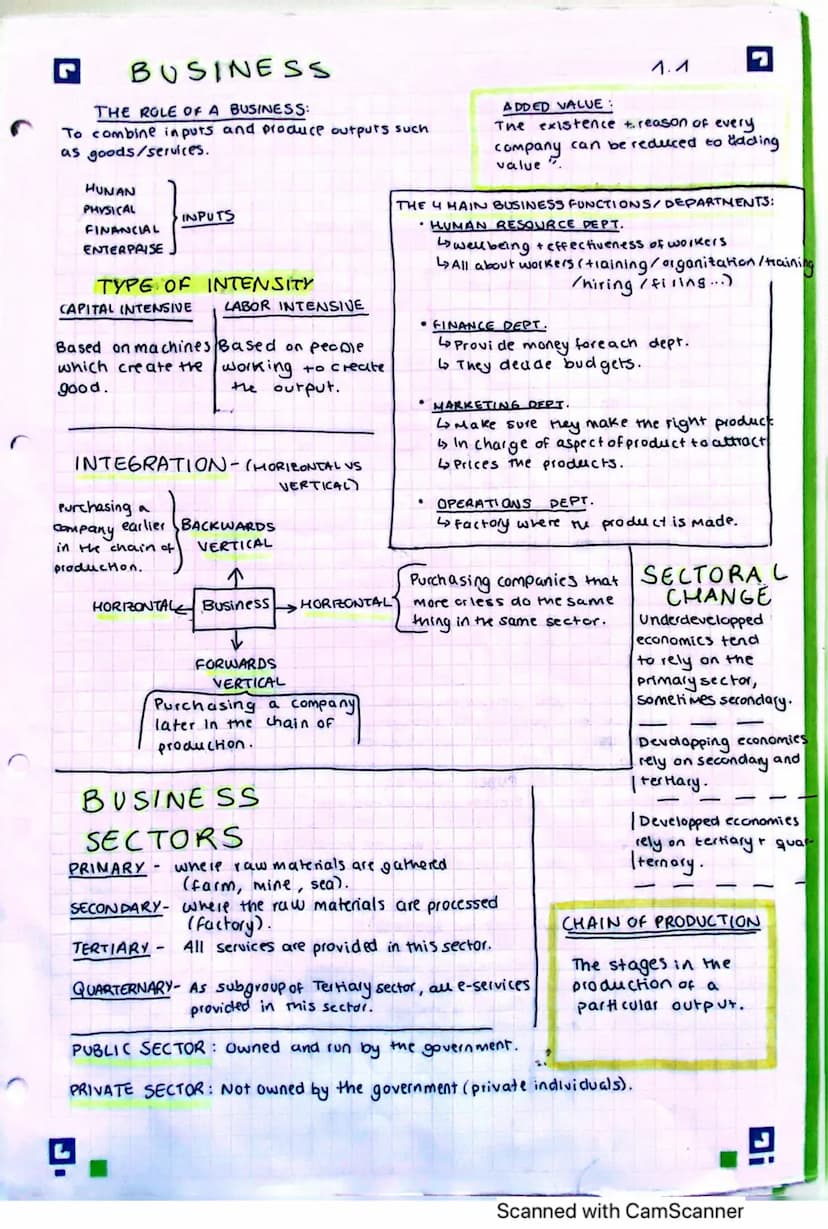 BUSINESS
1.1
THE ROLE OF A BUSINESS:
To combine inputs and produce outputs such
as goods/services.
HUMAN
PHYSICAL
FINANCIAL
ENTERPRISE
INPUTS
ADDED VALUE:
The existence + reason of every
company can be reduced to adding
value".
THE 4 MAIN BUSINESS FUNCTIONS/DEPARTMENTS:
• HUMAN RESOURCE DEPT.
↳ wellbeing + effectiveness of workers
↳ All about workers (training/organization/training
/hiring/firing...)
• FINANCE DEPT.
↳ Provide money foreach dept.
↳ They decide budgets.
• MARKETING DEPT.
↳ Make sure they make the right product
↳ In charge of aspect of product to attract
↳ Prices the products.
• OPERATIONS DEPT.
↳ factory where the product is made.
TYPE OF INTENSITY
CAPITAL INTENSIVE
Based on machines
which create the
good.
LABOR INTENSIVE
Based on people
working to create
the output.
INTEGRATION - (HORIZONTAL VS
VERTICAL)
Purchasing a
company earlier
in the chain of
production.
BACKWARDS
VERTICAL
HORIZONTAL ← Business → HORIZONTAL
Purchasing companies that
more or less do the same
thing in the same sector.
FORWARDS
VERTICAL
Purchasing a company
later in the chain of
production.
SECTORAL
CHANGE
Underdevelopped
economics tend
to rely on the
primary sector,
sometimes secondary.
Developping economies
rely on secondary and
tertiary.
Developped economies
rely on tertiary + quar-
ternary.
BUSINESS
SECTORS
PRIMARY - where raw materials are gathered
(farm, mine, sea).
SECONDARY - where the raw materials are processed
(factory).
TERTIARY - All services are provided in this sector.
QUARTERNARY - As subgroup of Tertiary sector, all e-services
provided in this sector.
PUBLIC SECTOR: Owned and run by the government.
PRIVATE SECTOR: Not owned by the government (private individuals).
CHAIN OF PRODUCTION
The stages in the
production of a
particular output.
Scanned with CamScanner